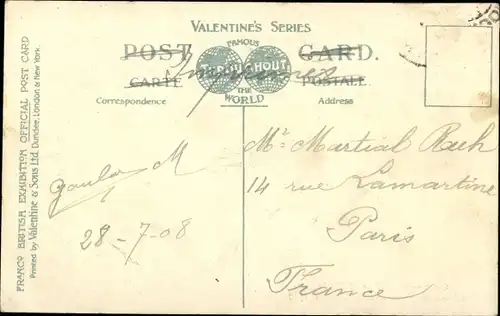 VALENTINE'S SERIES
POST CARD.
CARTE POSTALE.
FAMOUS
THROUGHOUT
THE
WORLD
Imprimés
Correspondence
Address
FRANCO BRITISH EXHIBITION OFFICIAL POST CARD
Printed by Valentine & Sons Ltd. Dundee, London & New York.
M
28-7-08
Mr Martial
14 rue Lamartine
Paris
France